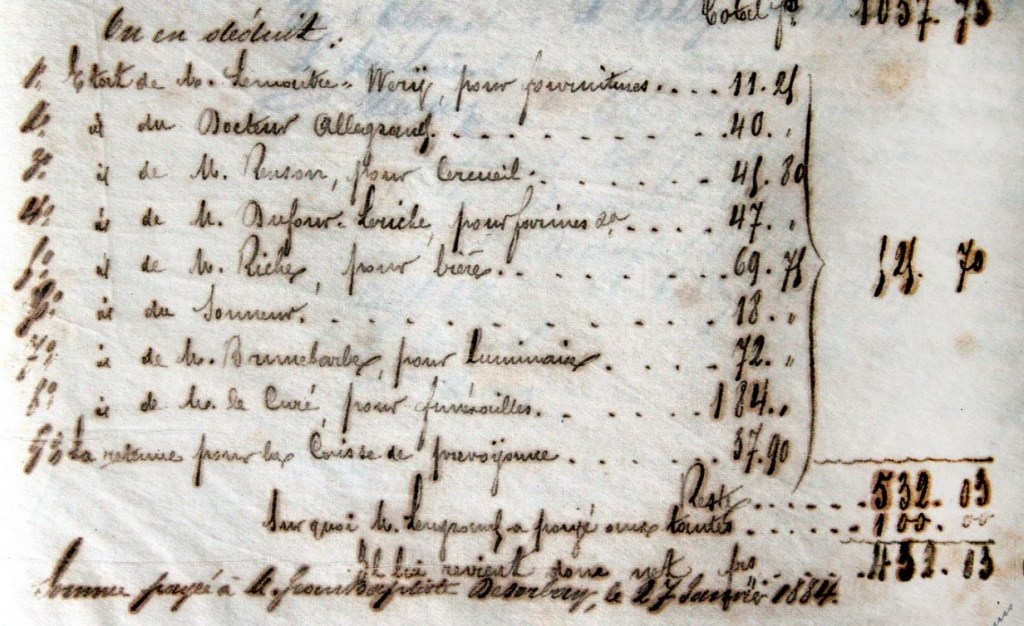 Total frs 1057. 73
On en déduit:
1° Etat de M. Lemoutre-Werÿ, pour fournitures.... 11.25
2° id du Docteur Allegrand. . . . . . . . 40. "
3° id de M. Renson, pour Cercueil. . . . . . . 45. 80
4° id de M. Dufour-Loriche, pour farines &a. . . . . 47. "
5° id de M. Riche, pour bière. . . . . . . . 69. 75 525. 70
6° id du Sonneur. . . . . . . . . . . 18. "
7° id de M. Brunebarbe, pour Luminaire. . . . . 72. "
8° id de M. le Curé, pour funérailles. . . . . . 184. "
9° La retenue pour la Caisse de prévoyance. . . . . 37.90
Reste . . . . . . 532. 03
Sur quoi M. Lengrand a payé aux tantes . . . . . . 100. 00
Il lui revient donc net frs . . . 432. 03
Somme payée à M. Jean Baptiste le 27 Janvier 1884.